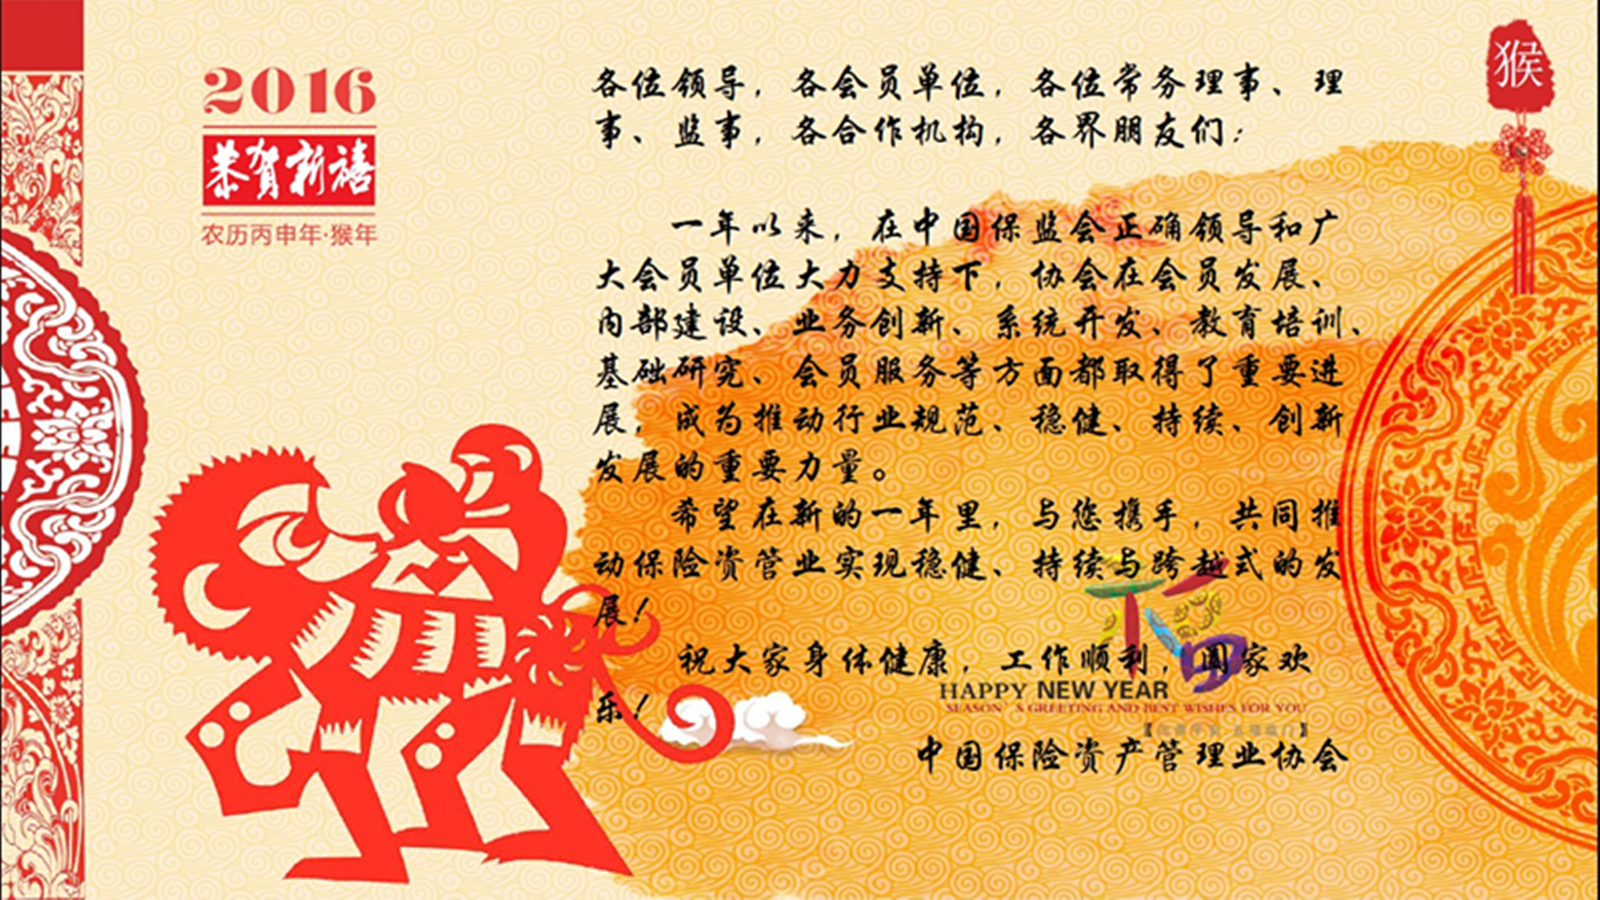 2016
恭贺新禧
农历丙申年·猴年
猴
各位领导，各会员单位，各位常务理事、理
事、监事，各合作机构，各界朋友们：
一年以来，在中国保监会正确领导和广
大会员单位大力支持下，协会在会员发展、
内部建设、业务创新、系统开发、教育培训、
基础研究、会员服务等方面都取得了重要进
展，成为推动行业规范、稳健、持续、创新
发展的重要力量。
希望在新的一年里，与您携手，共同推
动保险资管业实现稳健、持续与跨越式的发
展！
祝大家身体健康，工作顺利，阖家欢
乐！
福
HAPPY NEW YEAR
SEASON S GREETING AND BEST WISHES FOR YOU
中国保险资产管理业协会